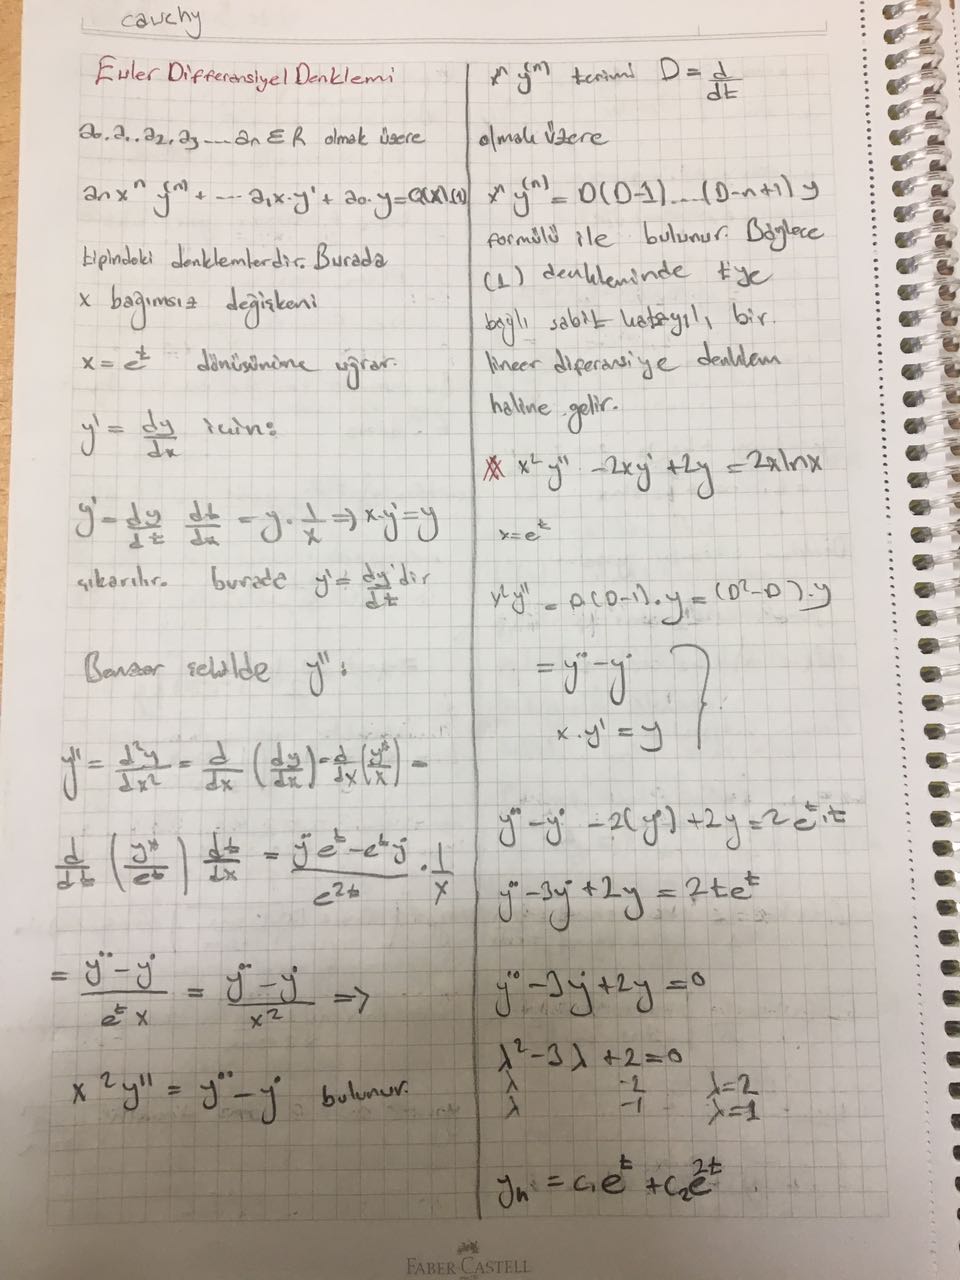 cauchy
Euler Differansiyel Denklemi
a₀, a₁, a₂, a₃ ---- aₙ ∈ R olmak üzere
aₙ xⁿ y⁽ⁿ⁾ + --- a₁x·y' + a₀·y = Q(x) (1)
tipindeki denklemlerdir. Burada
x bağımsız değişkeni
x = eᵗ dönüşümüne uğrar.
y' = dy/dx için:
y' = dy/dt dt/dx = ẏ · 1/x ⇒ x·y' = ẏ
çıkarılır. burada ẏ = dy/dt 'dir
Benzer şekilde y'':
y'' = d²y/dx² = d/dx (dy/dx) = d/dx (ẏ/x) =
d/dt (ẏ/eᵗ) dt/dx = (ÿ eᵗ − eᵗ ẏ)/e²ᵗ · 1/x
= (ÿ − ẏ)/(eᵗ x) = (ÿ − ẏ)/x² ⇒
x² y'' = ÿ − ẏ bulunur.
xⁿ y⁽ⁿ⁾ terimi D = d/dt
olmak üzere
xⁿ y⁽ⁿ⁾ = D(D-1)....(D-n+1) y
formülü ile bulunur. Böylece
(1) denkleminde t'ye
bağlı sabit katsayılı bir
lineer diferansiye denklem
haline gelir.
x² y'' − 2xy' + 2y = 2xlnx
x = eᵗ
x² y'' = D(D-1)·y = (D² − D)·y
= ÿ − ẏ
x·y' = ẏ
ÿ − ẏ − 2(ẏ) + 2y = 2eᵗ·t
ÿ − 3ẏ + 2y = 2teᵗ
ÿ − 3ẏ + 2y = 0
λ² − 3λ + 2 = 0
λ −2 λ = 2
λ −1 λ = 1
yₕ = c₁eᵗ + c₂e²ᵗ
FABER CASTELL